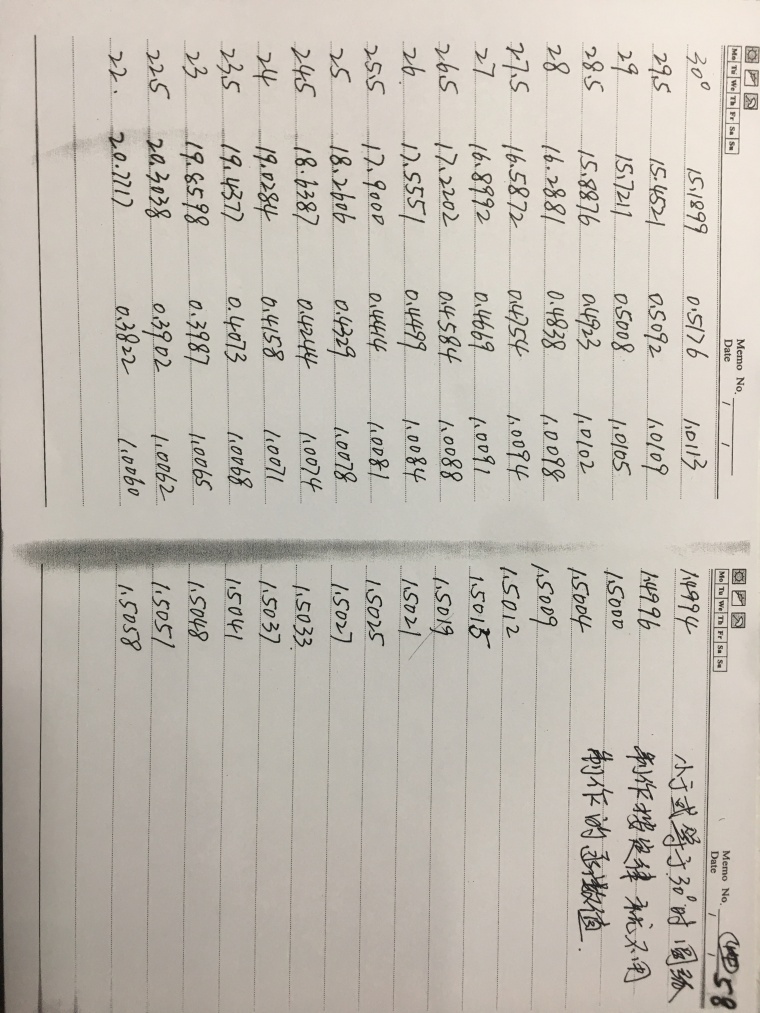 Memo No.
Mo Tu We Th Fr Sa Su
Date / /
30° 15.1899 0.5176 1.0113
29.5 15.4521 0.5092 1.0109
29 15.7211 0.5008 1.0105
28.5 15.8876 0.4923 1.0102
28 16.2881 0.4838 1.0098
27.5 16.5872 0.4754 1.0094
27 16.8992 0.4669 1.0091
26.5 17.2202 0.4584 1.0088
26. 17.5551 0.4499 1.0084
25.5 17.9000 0.4414 1.0081
25 18.2606 0.4329 1.0078
24.5 18.6387 0.4244 1.0074
24 19.0284 0.4158 1.0071
23.5 19.4377 0.4073 1.0068
23 19.8598 0.3987 1.0065
22.5 20.3038 0.3902 1.0062
22. 20.7717 0.3822 1.0060
58
Memo No.
Mo Tu We Th Fr Sa Su
Date / /
1.4994 小于或等于30°时圆弧
1.4996 制作按定律 就不用
1.5000 制作的函数值.
1.5004
1.5009
1.5012
1.5015
1.5019
1.5021
1.5025
1.5027
1.5033
1.5037
1.5041
1.5048
1.5051
1.5058